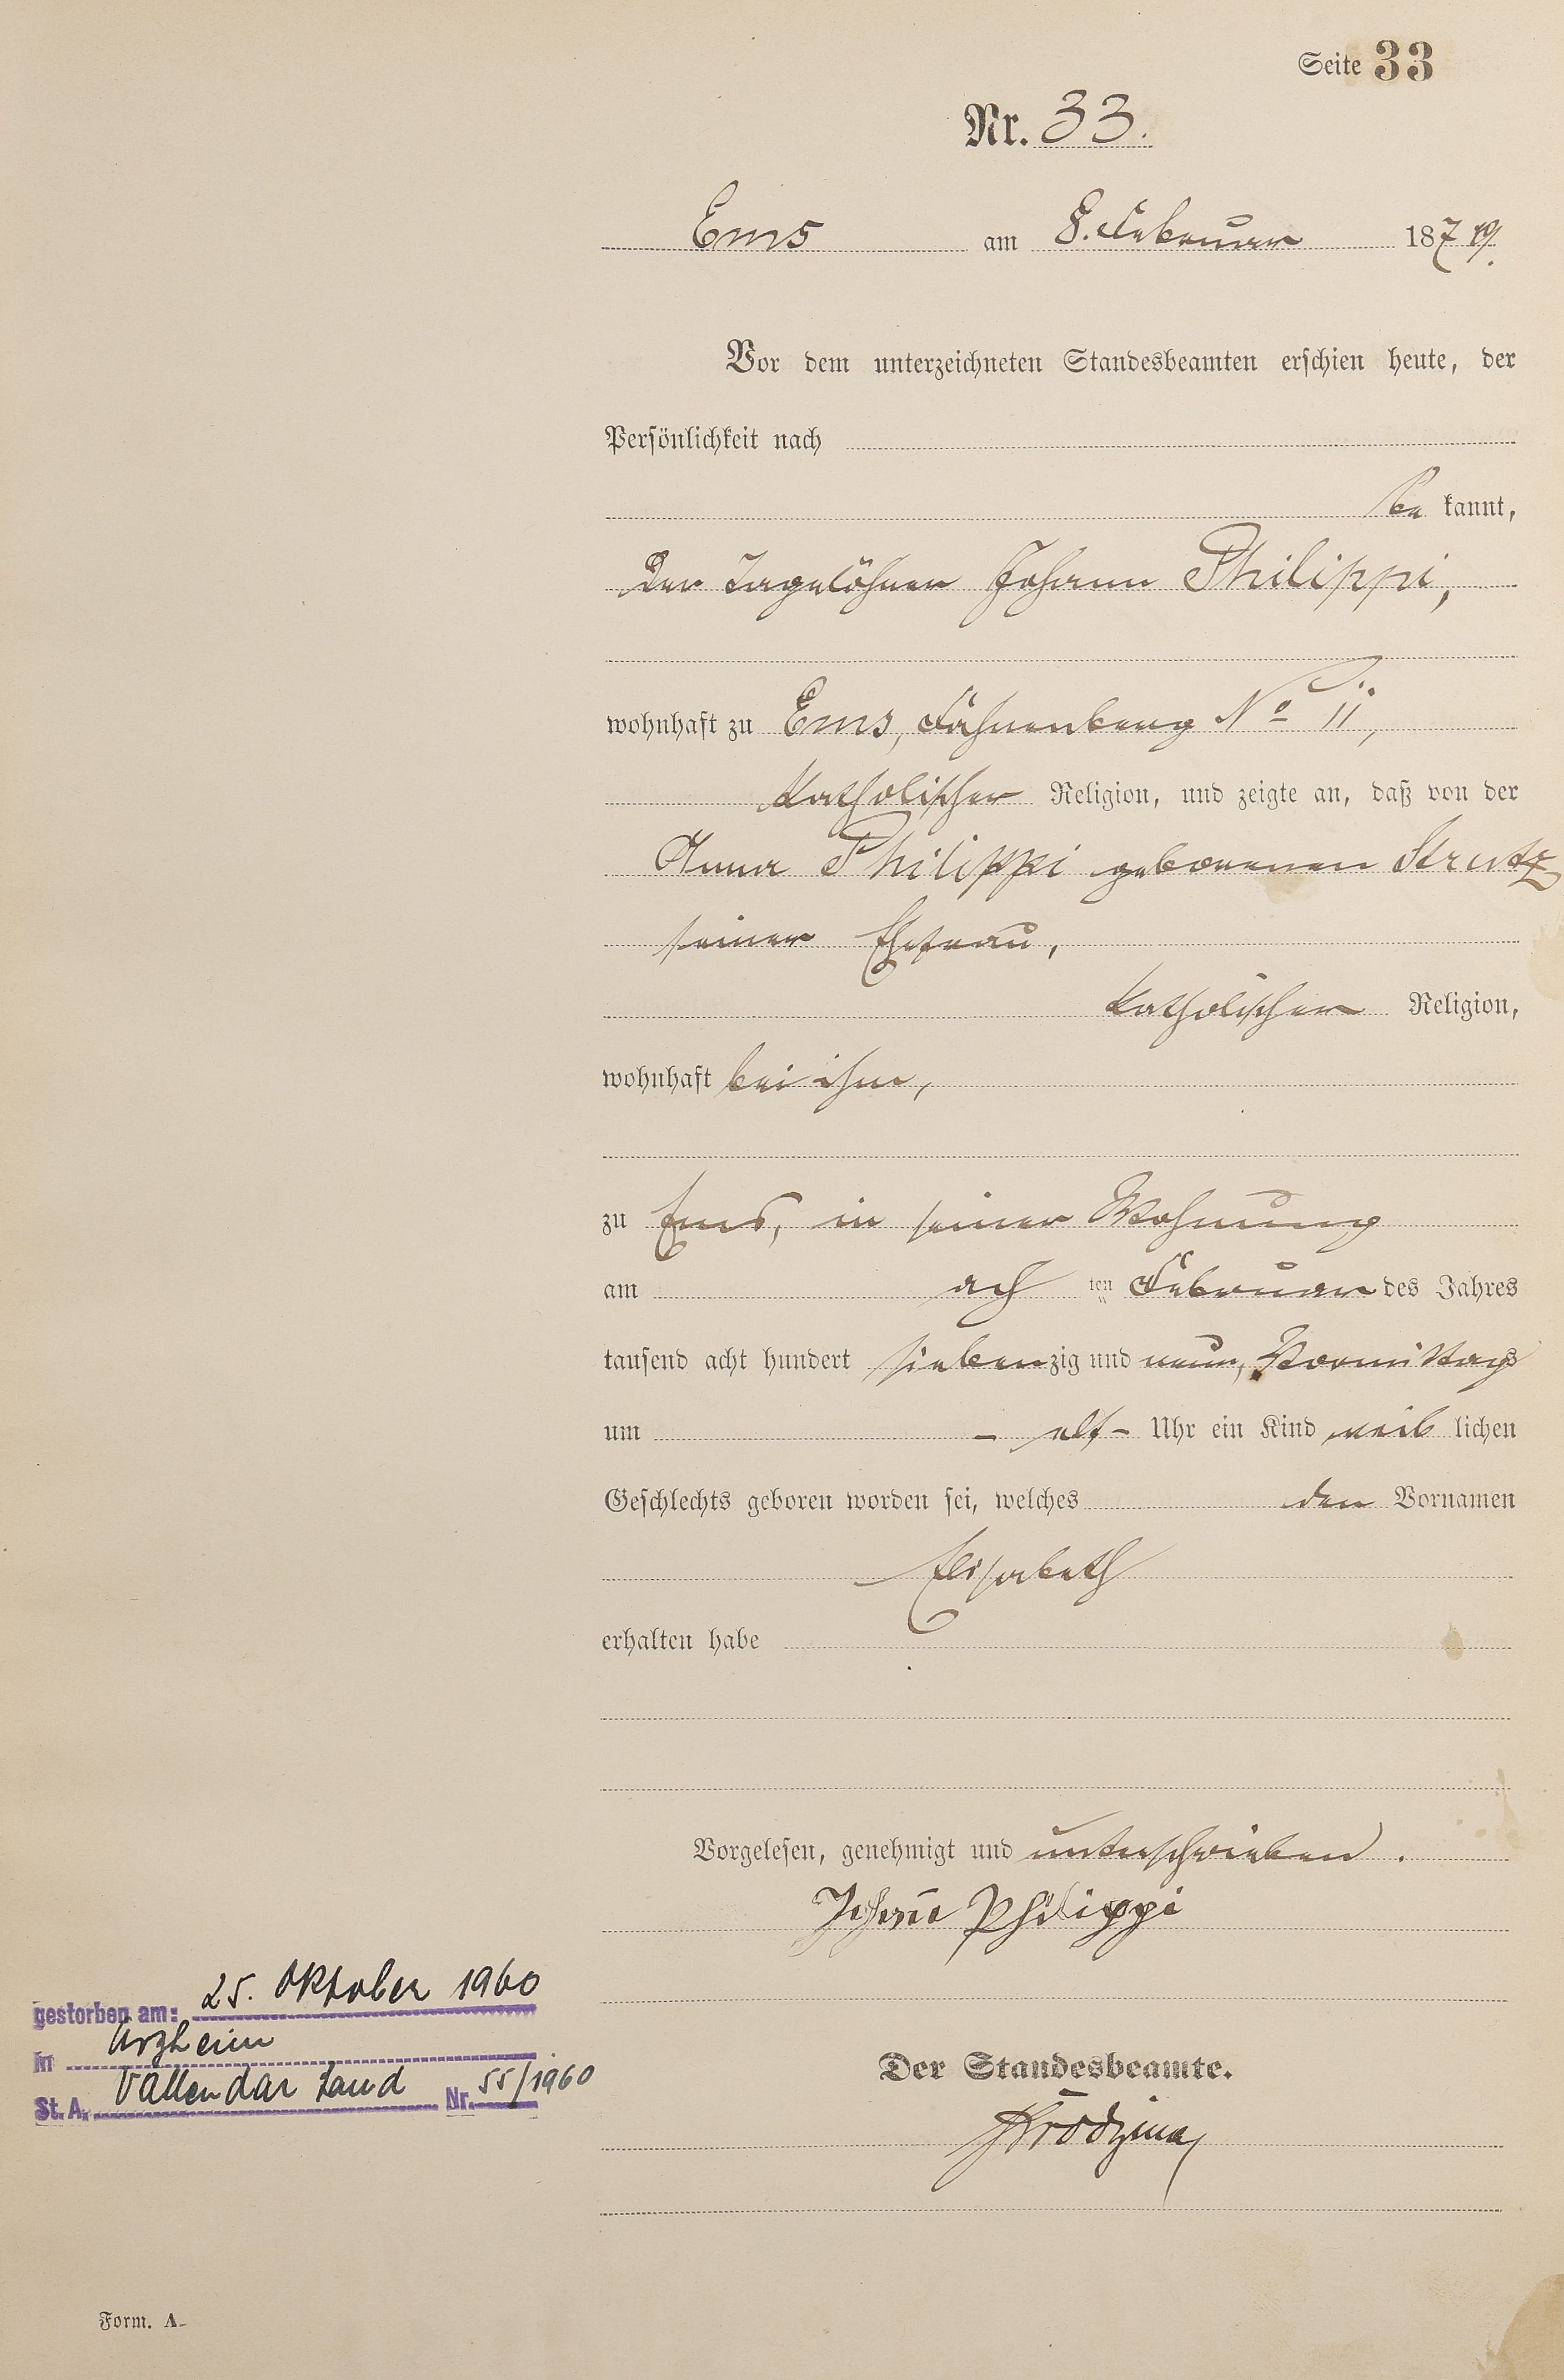 Seite 33
Nr. 33.
Ems am 8. Februar 1879.
Vor dem unterzeichneten Standesbeamten erschien heute, der
Persönlichkeit nach
be kannt,
der Tagelöhner Johann Philippi,
wohnhaft zu Ems, Fähnenberg No 11,
katholischer Religion, und zeigte an, daß von der
Anna Philippi geborenen Strutz
seiner Ehefrau,
katholischer Religion,
wohnhaft bei ihm,
zu Ems, in seiner Wohnung
am ach ten Februar des Jahres
tausend acht hundert sieben zig und neun, Vormittags
um - elf - Uhr ein Kind weib lichen
Geschlechts geboren worden sei, welches den Vornamen
Elisabeth
erhalten habe
Vorgelesen, genehmigt und unterschrieben.
Philippi
Der Standesbeamte.
gestorben am: 25. Oktober 1960
in Arzheim
St. A. Vallendar Land Nr. 55/1960
Form. A.